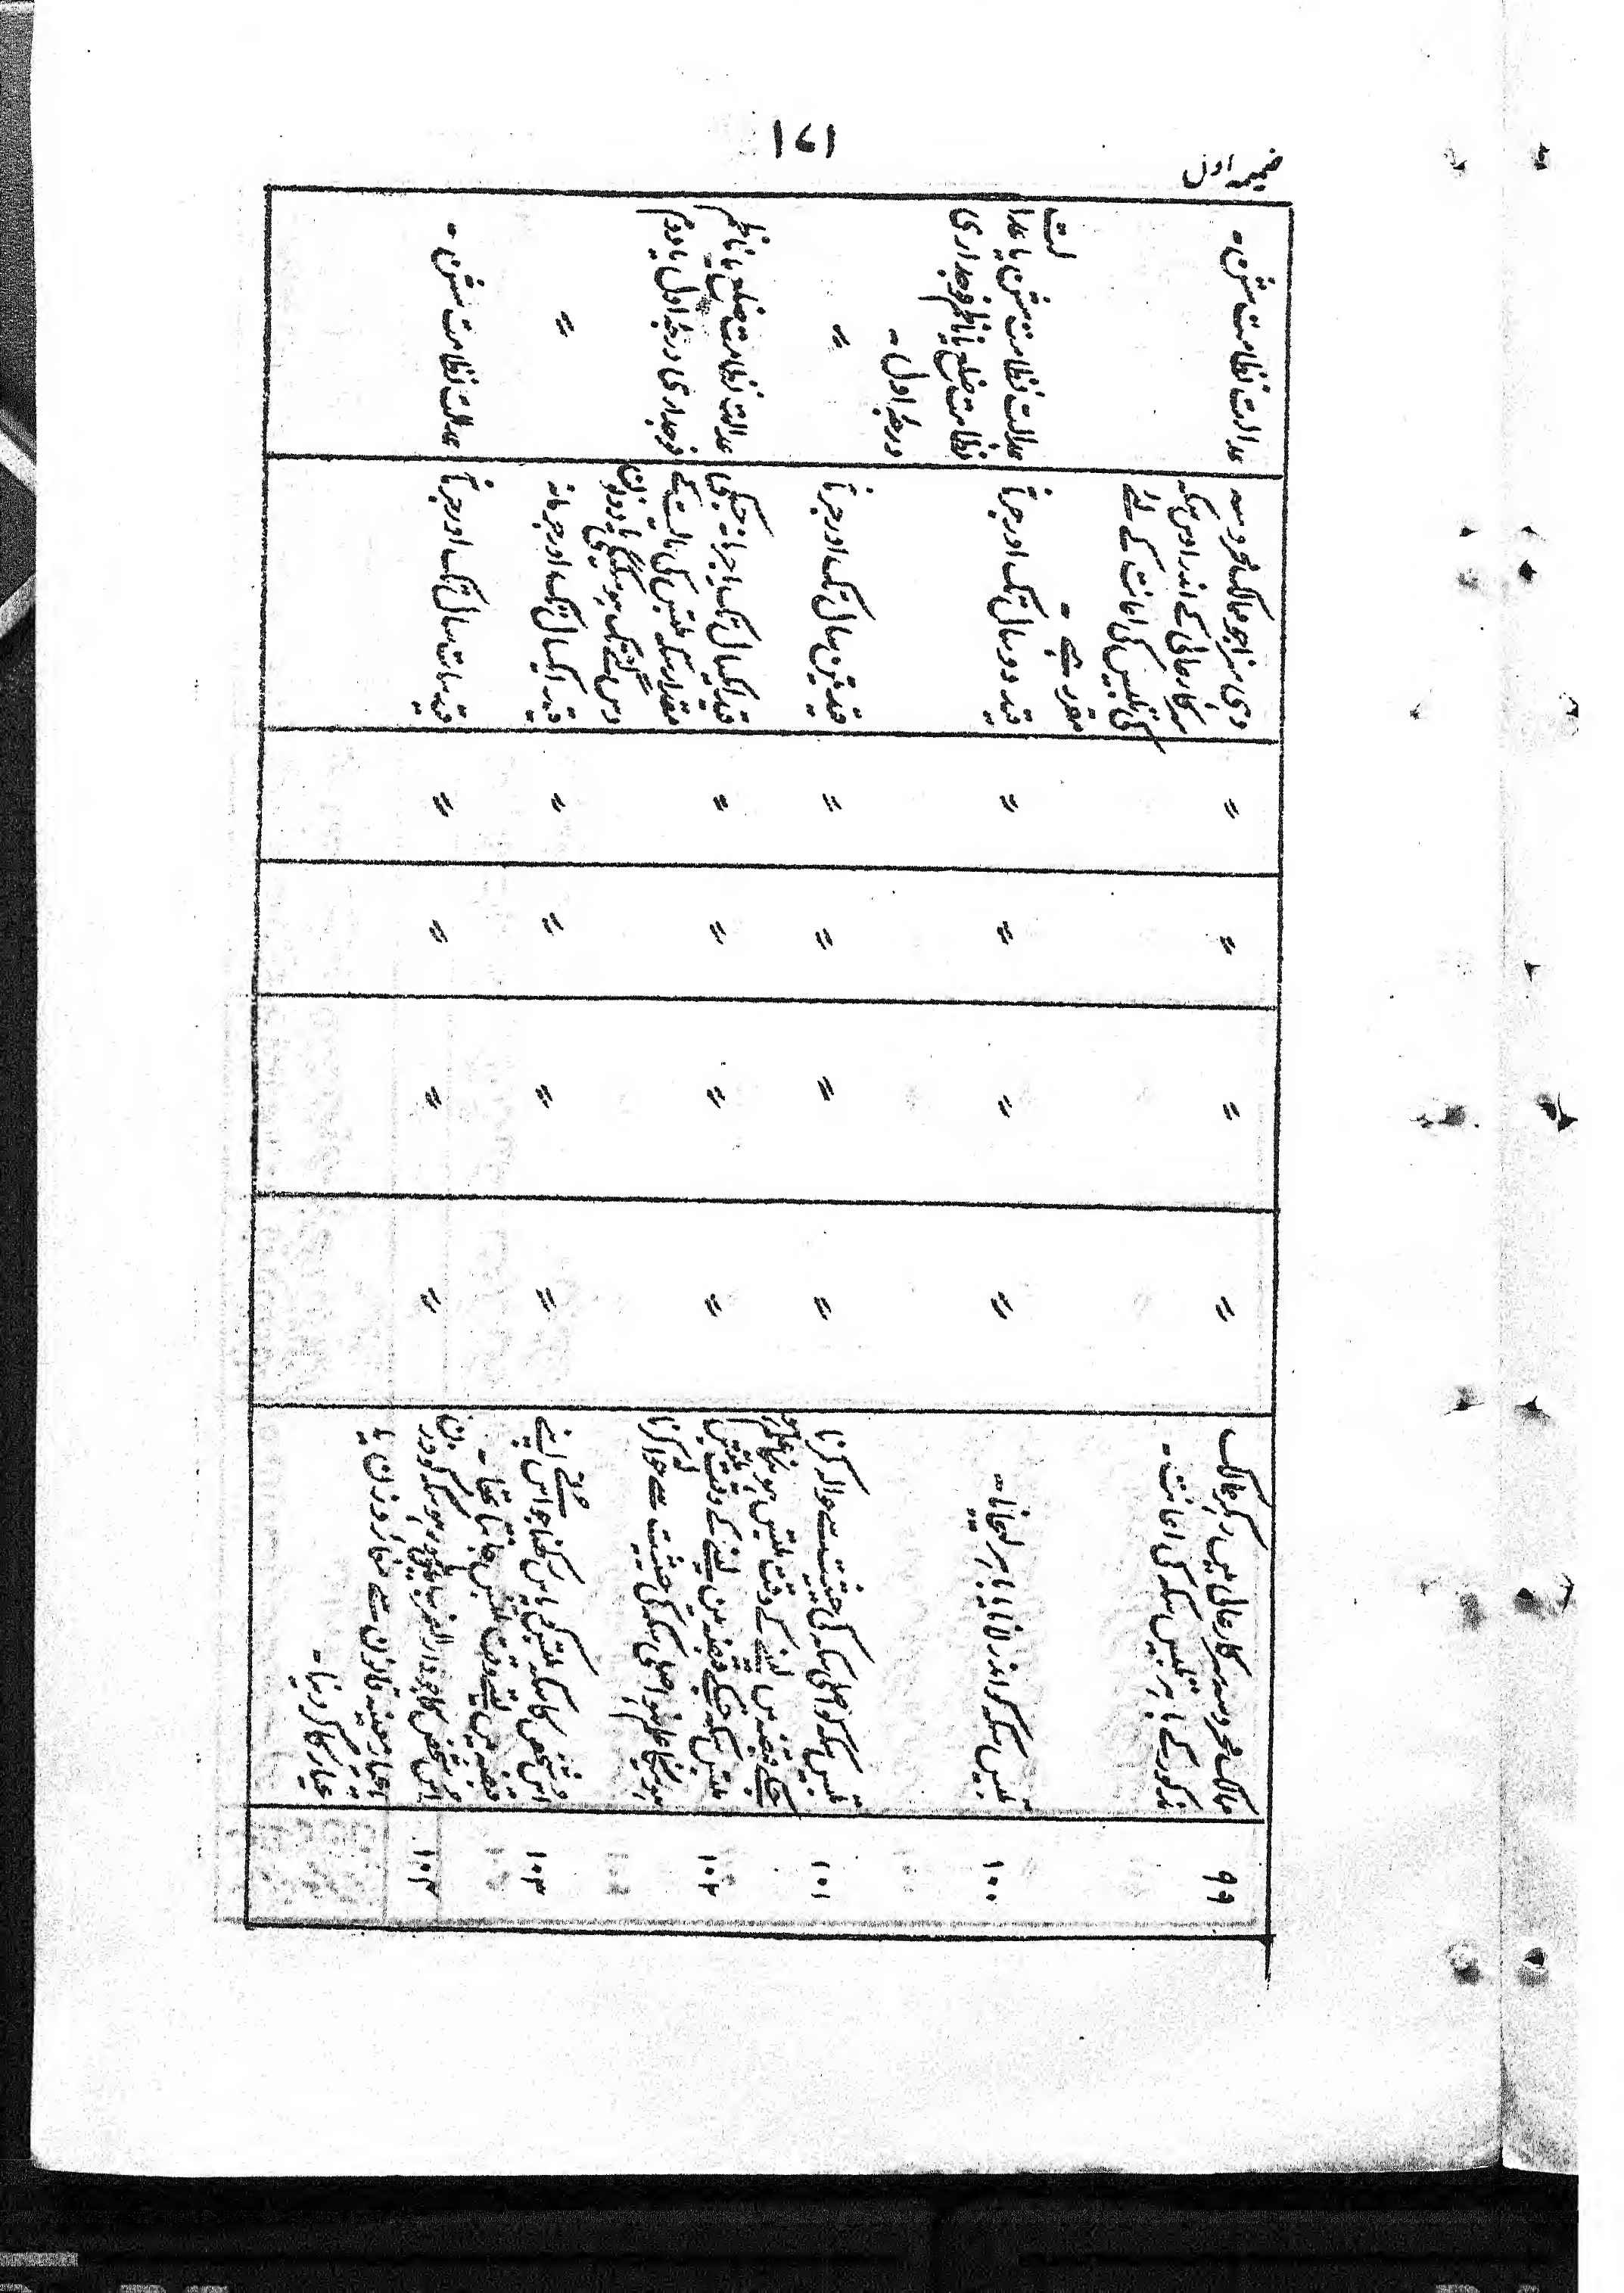 ۱۷۱
ضمیمہ اول
۹۹
ممالک محروسہ سرکار عالی میں دیگر ممالک
مذکور کے باہر تلبیس سکہ کی اعانت -
"
"
"
"
وہی سزا جو ممالک محروسہ
سرکار عالی کے اندر اوس سکہ
کی تلبیس کی اعانت کے لئے
مقرر ہے -
عدالت نظامت سشن -
۱۰۰
تلبیس سکہ کو اندر لانا یا باہر لیجانا -
"
"
"
"
قید دو سال تک اور جرمانہ
عدالت نظامت سشن یا عدا
لت
نظامت ضلع یا ناظم فوجداری
درجہ اول -
۱۰۱
تلبیس سکہ کو اصلی سکہ کی حیثیت سے حوالہ کرنا
جسکے قبضہ میں آنے کے وقت تلبیس ہونیکا علم
"
"
"
"
قید تین سال تک اور جرمانہ
"
۱۰۲
تلبیس سکہ جسکے قبضہ میں لینے کے وقت تلبیس
ہونیکا علم نہو اصلی سکہ کی حیثیت سے حوالہ کرنا
"
"
"
"
قید ایکسال تک یا جرمانہ جسکی
مقدار سکہ تلبیس کی مالیت کے
دس گنے تک ہو سکیگی یا دونوں
عدالت نظامت ضلع یا ناظم
فوجداری درجہ اول یا دوم
۱۰۳
اوس شخص کا سکہ تلبیس کو پاس رکھنا جو اس کے اپنے
قبضہ میں لیتے وقت تلبیس جانتا تھا -
"
"
"
"
قید ایکسال تک اور جرمانہ
"
۱۰۴
اوس شخص کا جو دار الضرب میں مامور ہو سکہ کو وزن
معینہ قانون سے مغائر وزن یا
تیار کر دینا -
"
"
"
"
قید سات سال تک اور جرمانہ
عدالت نظامت سشن -